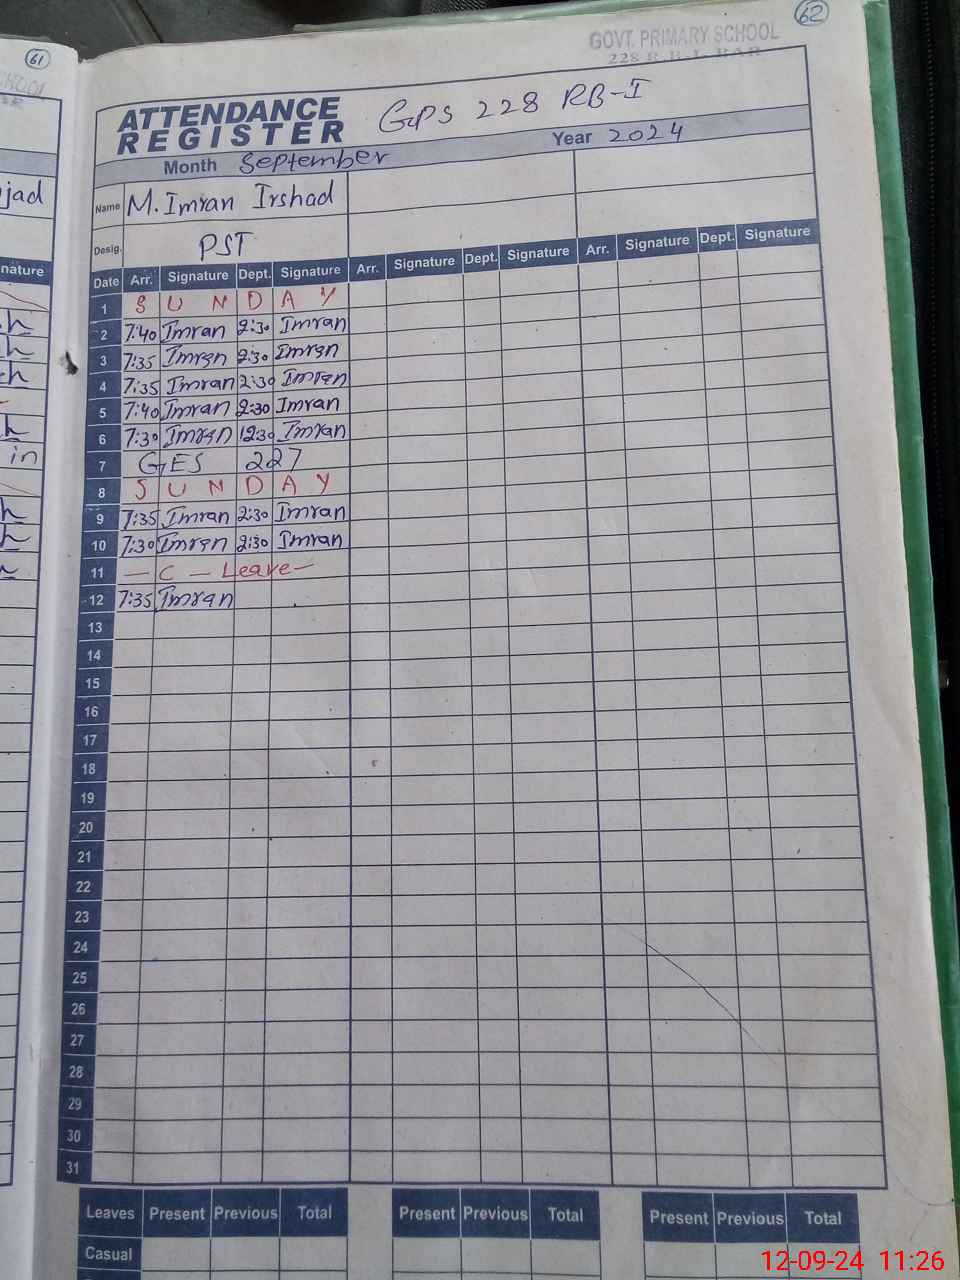 61
62
GOVT. PRIMARY SCHOOL
228 R.B.-I, BAR
ATTENDANCE
REGISTER
GPS 228 RB-I
Month September
Year 2024
jad
Name M. Imran Irshad
Desig. PST
nature
Date Arr. Signature Dept. Signature Arr. Signature Dept. Signature Arr. Signature Dept. Signature
1 S U N D A Y
2 7:40 Imran 2:30 Imran
3 7:35 Imran 2:30 Imran
4 7:35 Imran 2:30 Imran
5 7:40 Imran 2:30 Imran
6 7:30 Imran 12:30 Imran
in
7 GES 227
8 S U N D A Y
9 7:35 Imran 2:30 Imran
10 7:30 Imran 2:30 Imran
11 — C — Leave —
12 7:35 Imran
13
14
15
16
17
18
19
20
21
22
23
24
25
26
27
28
29
30
31
Leaves Present Previous Total Present Previous Total Present Previous Total
Casual
12-09-24 11:26